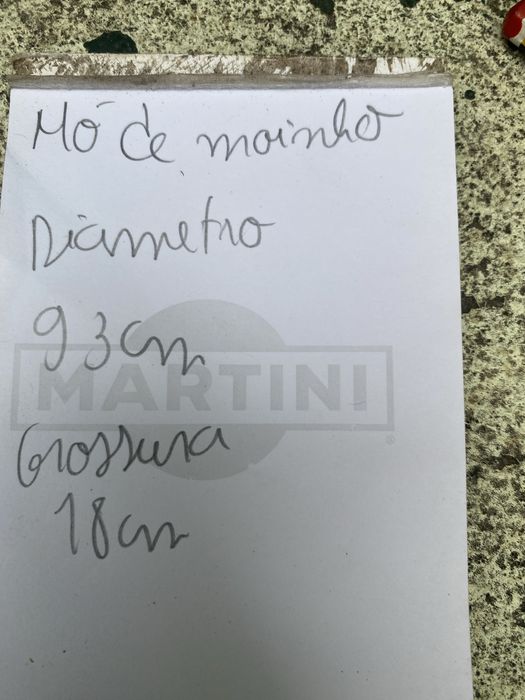 Mó de moinho
Diametro
93cm
MARTINI
®
Grossura
18cm